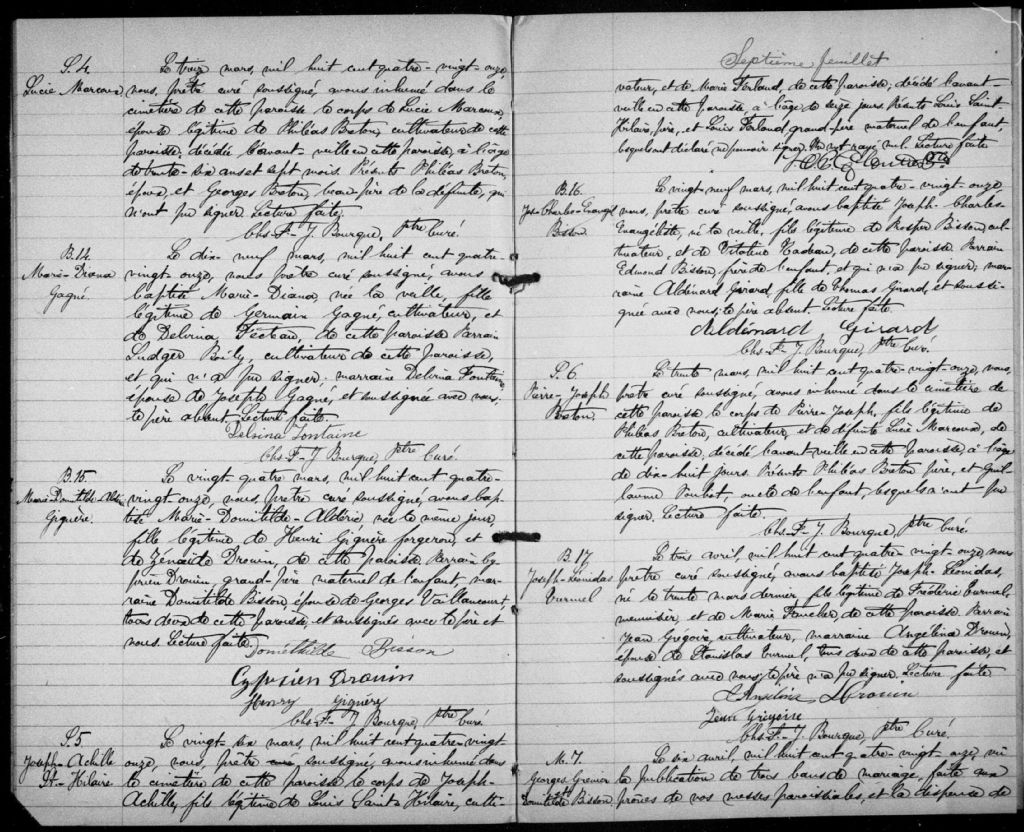 S. 4.
Lucie Marcoux
Le treize mars, mil huit cent quatre-vingt-onze,
nous, prêtre curé soussigné, avons inhumé dans le
cimetière de cette paroisse le corps de Lucie Marcoux,
épouse légitime de Philéas Breton, cultivateur de cette
paroisse, décédée l'avant-veille en cette paroisse, à l'âge
de trente-six ans et sept mois. Présents Philéas Breton,
époux, et Georges Breton, beau-père de la défunte, qui
n'ont pu signer. Lecture faite.
Chs-F-J. Bourque, Ptre Curé.
B. 14.
Marie-Diana
Gagné.
Le dix-neuf mars, mil huit cent quatre-
vingt-onze, nous prêtre curé soussigné, avons
baptisé Marie-Diana, née la veille, fille
légitime de Germain Gagné, cultivateur, et
de Delvina Fecteau, de cette paroisse. Parrain
Ludger Boily, cultivateur de cette paroisse,
et qui n'a pu signer; marraine Delvina Fontaine,
épouse de Joseph Gagné, et soussignée avec nous,
le père absent. Lecture faite.
Delvina Fontaine
Chs-F-J Bourque, Ptre Curé.
B. 15.
Marie-Domitilde-Aldéric
Giguère.
Le vingt-quatre mars, mil huit cent quatre-
vingt-onze, nous, prêtre curé soussigné, avons bap-
tisé Marie-Domitilde-Aldéric née le même jour,
fille légitime de Henri Giguère forgeron, et
de Zénaïde Drouin, de cette paroisse. Parrain Cy-
prien Drouin, grand-père maternel de l'enfant, mar-
raine Domitilde Bisson, épouse de Georges Vaillancourt,
tous deux de cette paroisse, et soussignés avec le père et
nous. Lecture faite.
Dométhilde Bisson
Cyprien Drouin
Henry Giguère
Chs-F-J. Bourque, Ptre Curé.
S. 5
Joseph-Achille
St-Hilaire
Le vingt-six mars, mil huit cent quatre-vingt-
onze, nous, prêtre curé, soussigné, avons inhumé dans
le cimetière de cette paroisse le corps de Joseph-
Achille, fils légitime de Louis Saint-Hilaire, culti-
Septième feuillet
vateur, et de Marie Ferland, de cette paroisse, décédé l'avant-
veille en cette paroisse à l'âge de seize jours. Présents Louis Saint-
Hilaire, père, et Louis Ferland grand-père maternel de l'enfant,
lesquels ont déclaré ne pouvoir signer. Un mot rayé nul. Lecture faite
B. 16.
Jos-Charles-Evangéliste
Bisson.
Le vingt-neuf mars, mil huit cent quatre-vingt-onze,
nous, prêtre curé soussigné, avons baptisé Joseph-Charles-
Evangéliste, né la veille, fils légitime de Prosper Bisson, cul-
tivateur, et de Vitaline Nadeau, de cette paroisse. Parrain
Edmond Bisson, frère de l'enfant, et qui n'a pu signer; mar-
raine Aldénard Girard, fille de Thomas Girard, et soussi-
gnée avec nous; le père absent. Lecture faite.
Aldémard Girard
Chs-F-J. Bourque, Ptre Curé.
S. 6
Pierre-Joseph
Breton.
Le trente mars, mil huit cent quatre-vingt-onze, nous,
prêtre curé soussigné, avons inhumé dans le cimetière de
cette paroisse le corps de Pierre-Joseph, fils légitime de
Philéas Breton, cultivateur, et de défunte Lucie Marcoux, de
cette paroisse, décédé l'avant-veille en cette paroisse, à l'âge
de dix-huit jours. Présents Philéas Breton père, et Guil-
laume Poulet, oncle de l'enfant, lesquels n'ont pu
signer. Lecture faite.
Chs-F-J. Bourque, Ptre Curé.
B. 17.
Joseph-Léonidas
Turmel
Le trois avril, mil huit cent quatre-vingt-onze, nous
prêtre curé soussigné, avons baptisé Joseph-Léonidas,
né le trente mars dernier, fils légitime de Frédéric Turmel,
menuisier, et de Marie Faucher, de cette paroisse. Parrain
Jean Grégoire, cultivateur, marraine Angélina Drouin,
épouse de Stanislas Turmel, tous deux de cette paroisse, et
soussignés avec nous; le père n'a pu signer. Lecture faite
Angelina Drouin
Jean
Chs-F-J. Bourque, Ptre Curé.
M. 7.
Georges Grenier
et
Domitilde Bisson
Le six avril, mil huit cent quatre-vingt-onze, vu
la publication de trois bans de mariage, faite aux
prônes de nos messes paroissiales, et la dispense de